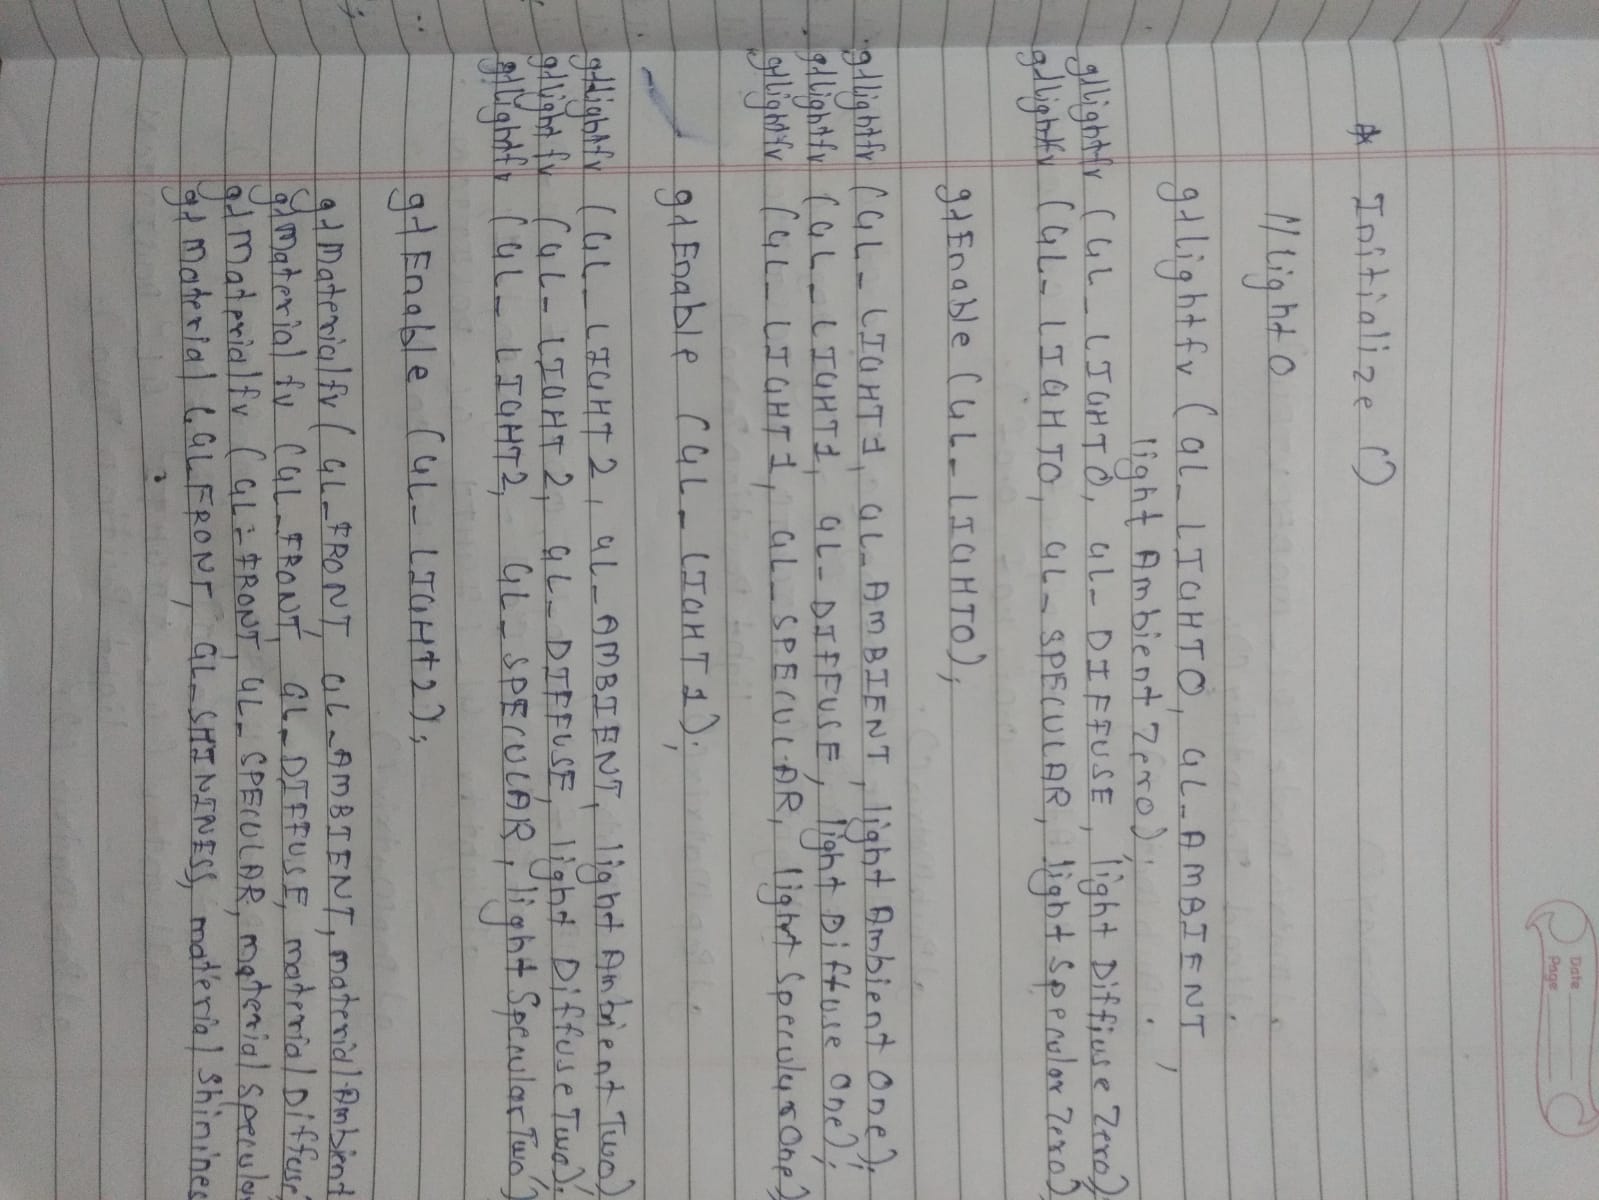 Date
Page
* Initialize ()
// Light 0
glLightfv (GL_LIGHT0, GL_AMBIENT,
light Ambient Zero);
glLightfv (GL_LIGHT0, GL_DIFFUSE, light Diffiuse Zero);
glLightfv (GL_LIGHT0, GL_SPECULAR, light Specular Zero)
glEnable (GL_LIGHT0);
glLightfv (GL_LIGHT1, GL_AMBIENT, light Ambient One);
glLightfv (GL_LIGHT1, GL_DIFFUSE, light Diffuse One);
glLightfv (GL_LIGHT1, GL_SPECULAR, light Specular One)
glEnable (GL_LIGHT1);
glLightfv (GL_LIGHT2, GL_AMBIENT, light Ambient Two);
glLight fv (GL_LIGHT2, GL_DIFFUSE, light Diffuse Two);
glLightfv (GL_LIGHT2, GL_SPECULAR, light Specular Two)
glEnable (GL_LIGHT2);
glMaterialfv (GL_FRONT, GL_AMBIENT, material Ambient
glMaterial fv (GL_FRONT, GL_DIFFUSE, material Diffuse,
glMaterialfv (GL_FRONT, GL_SPECULAR, material Specular
glMaterial (GL FRONT, GL_SHININESS, material Shinines